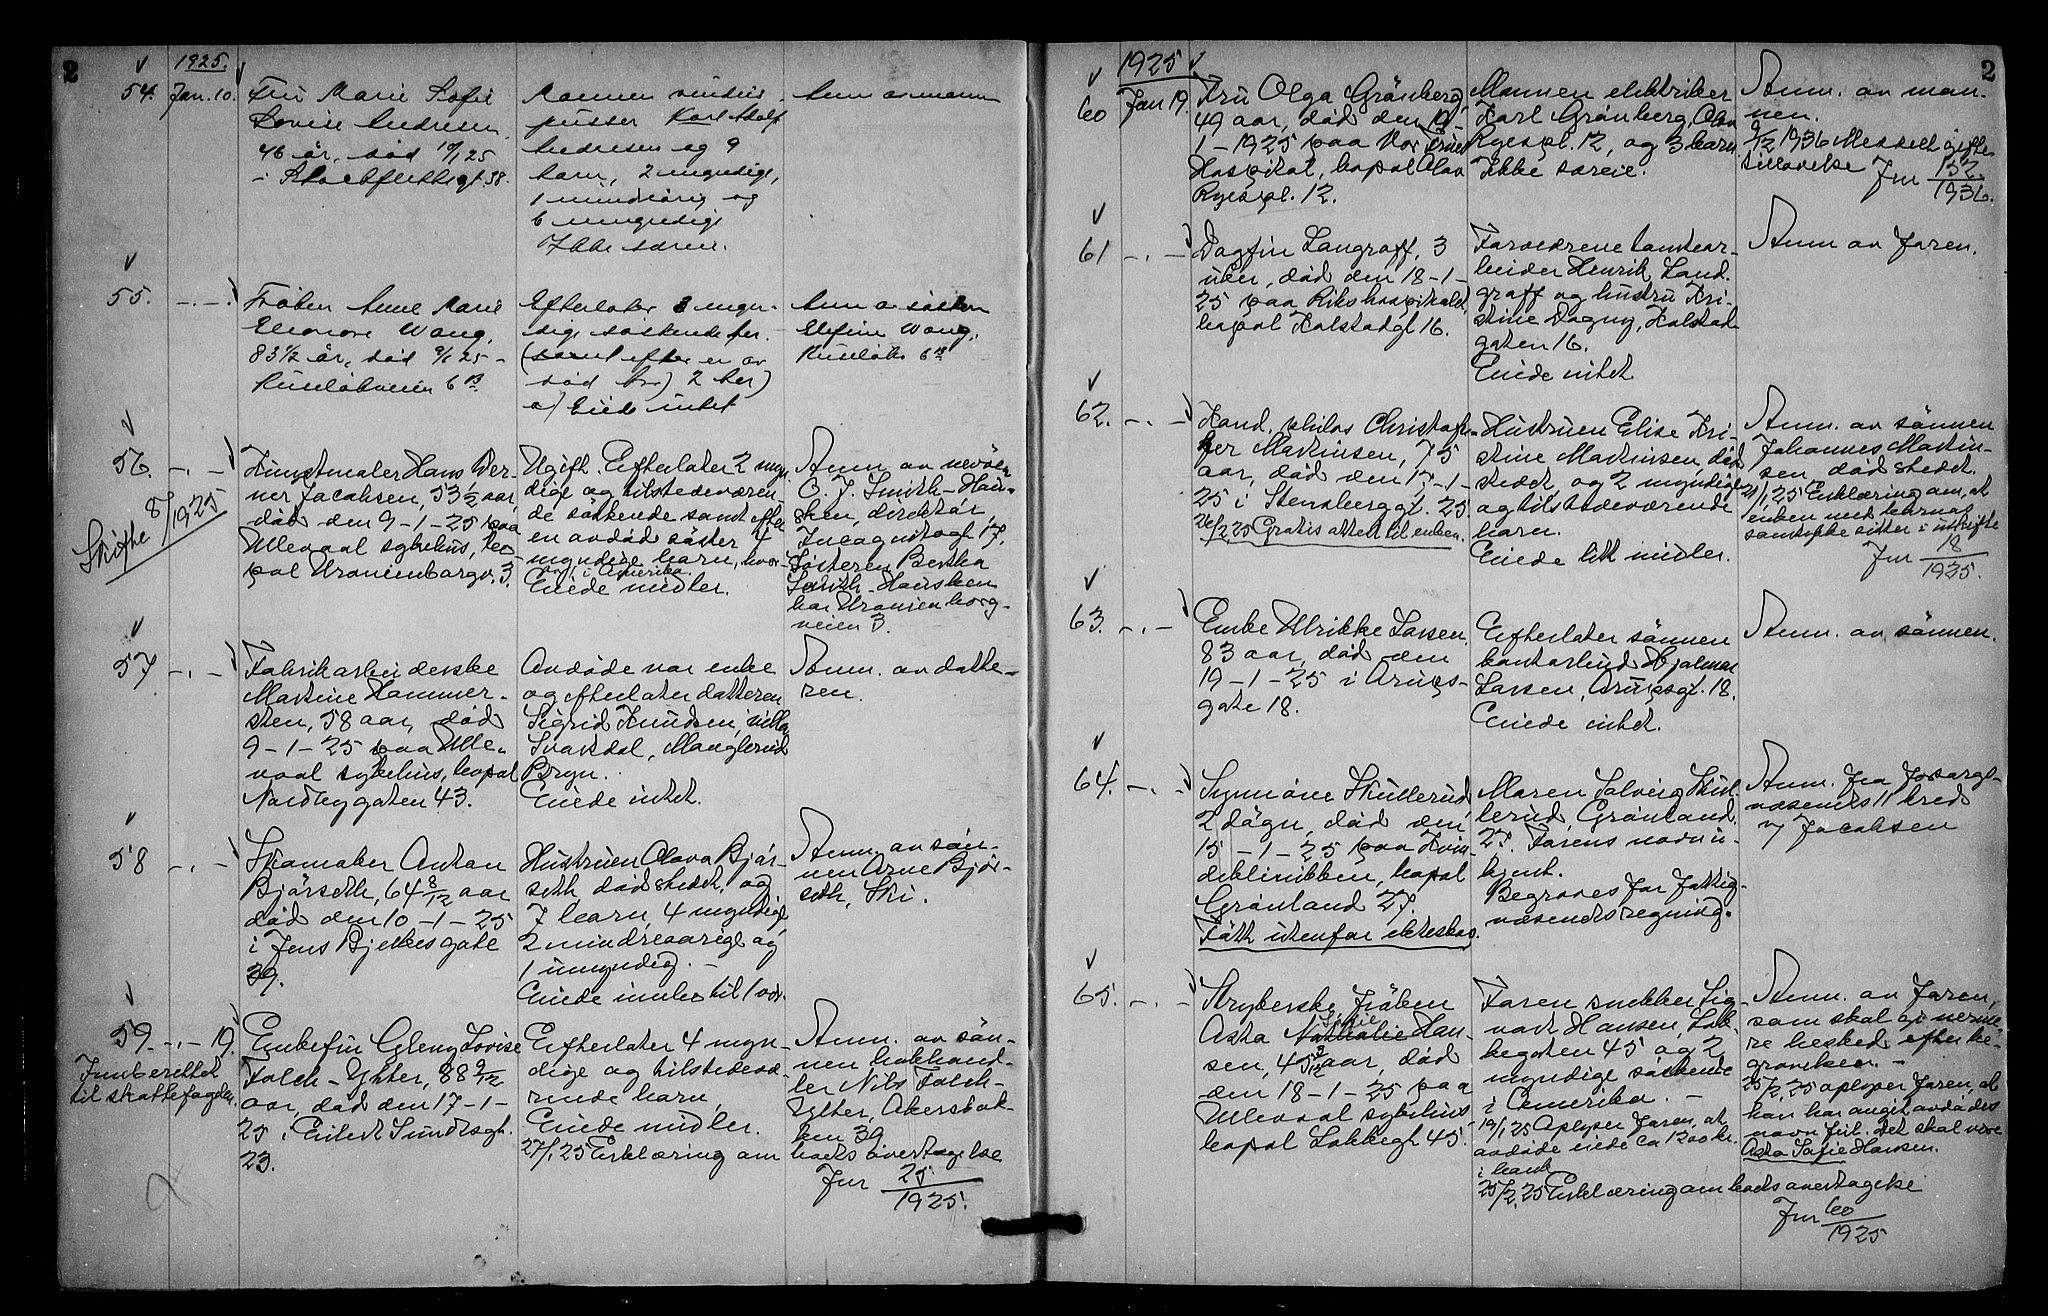 2
1925.
54. Jan. 10.
Fru Marie Sofie
Lovise Andresen,
46 år, død 10/1 25
Mannen vindus-
pusser Karl Adolf
Andresen og 9
barn, 2 myndige,
1 mindreårig og
6 umyndige
Ikke særeie.
Anm av mannen
55. -.-.
Frøken Anne Marie
Eleonore Wang,
83 1/2 år, død 9/1 25 -
Ruseløkveien 6 B
Efterlater 3 myn-
dige søskende her.
(samt efter en av
død bror) 2 her)
a) Eiide intet
Anm av søsteren
Wang,
Ruseløkv 6 B
56. -.-
Skifte 8/1925
Kunstmaler Hans Wer-
ner Jacobsen, 53 1/2 aar,
død den 9-1-25 paa
Ullevaal sykehus, bo-
pæl Uranienborgv. 3.
Ugift. Efterlater 2 myn
dige og tilstedeværen
de søskende samt efter
en avdød søster 4
myndige barn, hvor-
av i Amerika
Eiede midler.
Anm. av nevøen
C. J. Smith-Haus-
ken, direktør
Incognitogt 17.
Søsteren Bertha
Smith-Hausken
bor Uranienborg-
veien 3.
57 -.-
Fabrikarbeiderske
Martine Hammer-
sten, 58 aar, død
9-1-25 paa Ulle-
vaal sykehus, bopæl
Nordbygaten 43.
Avdøde var enke
og efterlater datteren
Sigrid Knudsen, villa
Svaldal, Manglerud
Bryn.
Eiede intet.
Anm. av datte-
ren.
58 -.-
Skomaker Anton
Bjørseth, 64 8/12 aar
død den 10-1-25
i Jens Bjelkes gate
39.
Hustruen Olava Bjør-
seth dødsstedet, og
7 barn, 4 myndige
2 mindreaarige og
1 umyndig. -
Eiede indbo til 1 vær.
Anm. av søn-
nen Arne Bjør-
seth, Ski.
59. -.- 19.
Innberettet
til skattefogden.
Enkefru Gleny Lovise
Falch-Ytter, 88 9/12
aar, død den 17-1-
25 i Eilert Sundtsgt.
23.
Efterlater 4 myn-
dige og tilstedevæ
rende barn,
Eiede midler.
27/1 25 Erklæring om boets overtagelse
Jnr 25/1925.
Anm. av søn-
nen bokhand-
ler Nils Falch-
Ytter, Akersbak-
ken 39
2
1925
60 Jan 19.
Fru Olga Grönberg,
49 aar, død den 19-
1-1925 paa Vor Frues
Hospital, bopæl Olav
Ryespl. 12.
Mannen elektriker
Karl Grönberg, Olav
Ryespl. 12, og 3 barn
Ikke særeie.
Anm. av man-
nen.
9/12 1936 Meddelt gifte
tillatelse
Jnr 152/1936.
61 -.-
Dagfin Langraff, 3
uker, død den 18-1-
25 paa Rikshospitalet,
bopæl Falstadgt 16.
Forældrene tomtear-
beider Henrik Land-
graff og hustru Kri-
stine Dagny, Falstad
gaten 16.
Eiede intet
Anm. av faren.
62. -.-
Kand. philos Christof-
fer Martinsen, 75
aar, død den 17-1-
25 i Stensberggt. 25
26/2 25 Gratis attest til enken.
Hustruen Elise Kri-
stine Martinsen, død
stedet og 2 myndige
og tilstedeværende
barn.
Eiede litt midler.
Anm. av sønnen
Johannes Martin-
sen, dødsstedet.
21/1 25 Erklæring om, at
enken med barnas
samtykke sitter i uskifte
Jnr 18/1925.
63. -.-
Enke Ulrikke Larsen
83 aar, død den
19-1-25 i Arups-
gate 18.
Efterlater sønnen
kontorbud Hjalmar
Larsen, Arupsgt. 18.
Eiede intet.
Anm. av sønnen.
64. -.-
Synnöve Skullerud
2 døgn, død den
15-1-25 paa Kvin-
deklinikken, bopæl
Grønland 27.
Født utenfor ekteskap.
Maren Solveig Skul
lerud, Grønland
27. Farens navn u-
kjent.
Begraves for Fattig-
væsenets regning.
Anm. fra forsorgs-
væsenets 11 kreds
v/ Jacobsen
65. -.-
Strykerske, frøken
Asta Nathalie Han-
Sofie
sen, 45 3/12 aar, død
den 18-1-25 paa
Ullevaal sykehus
bopæl Lakkegt 45.
Faren snekker Sig-
vart Hansen, Lak-
kegaten 45 og 2
myndige søskende
i Amerika. -
19/1 25 Oplyser faren, at
avdøde eiede ca 1200 kr.
i bank
25/2 25 Erklæring om boets overtagelse
Jnr 60/1925
Anm. av faren,
som skal gi nærme-
re besked efter be-
gravelsen. -
25/2 25 oplyser faren, at
han har angit avdødes
navn feil. Det skal være
Asta Sofie Hansen.